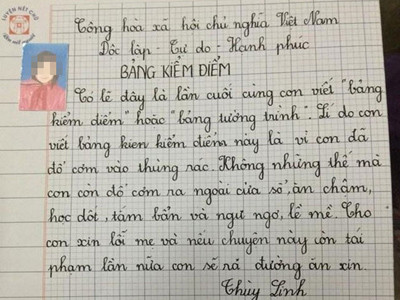 LUYỆN NÉT CHỮ
RÈN NẾT NGƯỜI
Cộng hòa xã hội chủ nghĩa Việt Nam
Độc lập - Tự do - Hạnh phúc
BẢNG KIỂM ĐIỂM
Có lẽ đây là lần cuối cùng con viết "bảng
kiểm điểm" hoặc "bảng tường trình". Lí do con
viết bảng kiẻn kiểm điểm này là vì con đã
đổ cơm vào thùng rác. Không những thế mà
con còn đổ cơm ra ngoài cửa sổ, ăn chậm,
học dốt, tắm bẩn và ngu ngơ, lề mề. Cho
con xin lỗi mẹ và nếu chuyện này còn tái
phạm lần nữa con sẽ ra đường ăn xin.
Thùy Linh